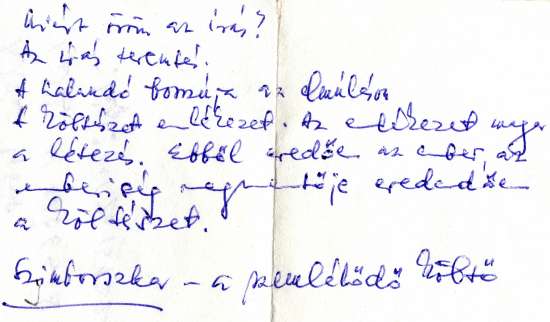 Miért öröm az írás?
Az írás teremtés.
A halandó bosszúja az elmúláson
A költészet emlékezet. Az emlékezet maga
a létezés. Ebből eredően az ember, az
emberiség megmentője eredendően
a költészet.
Szymborszka – a szemlélődő költő